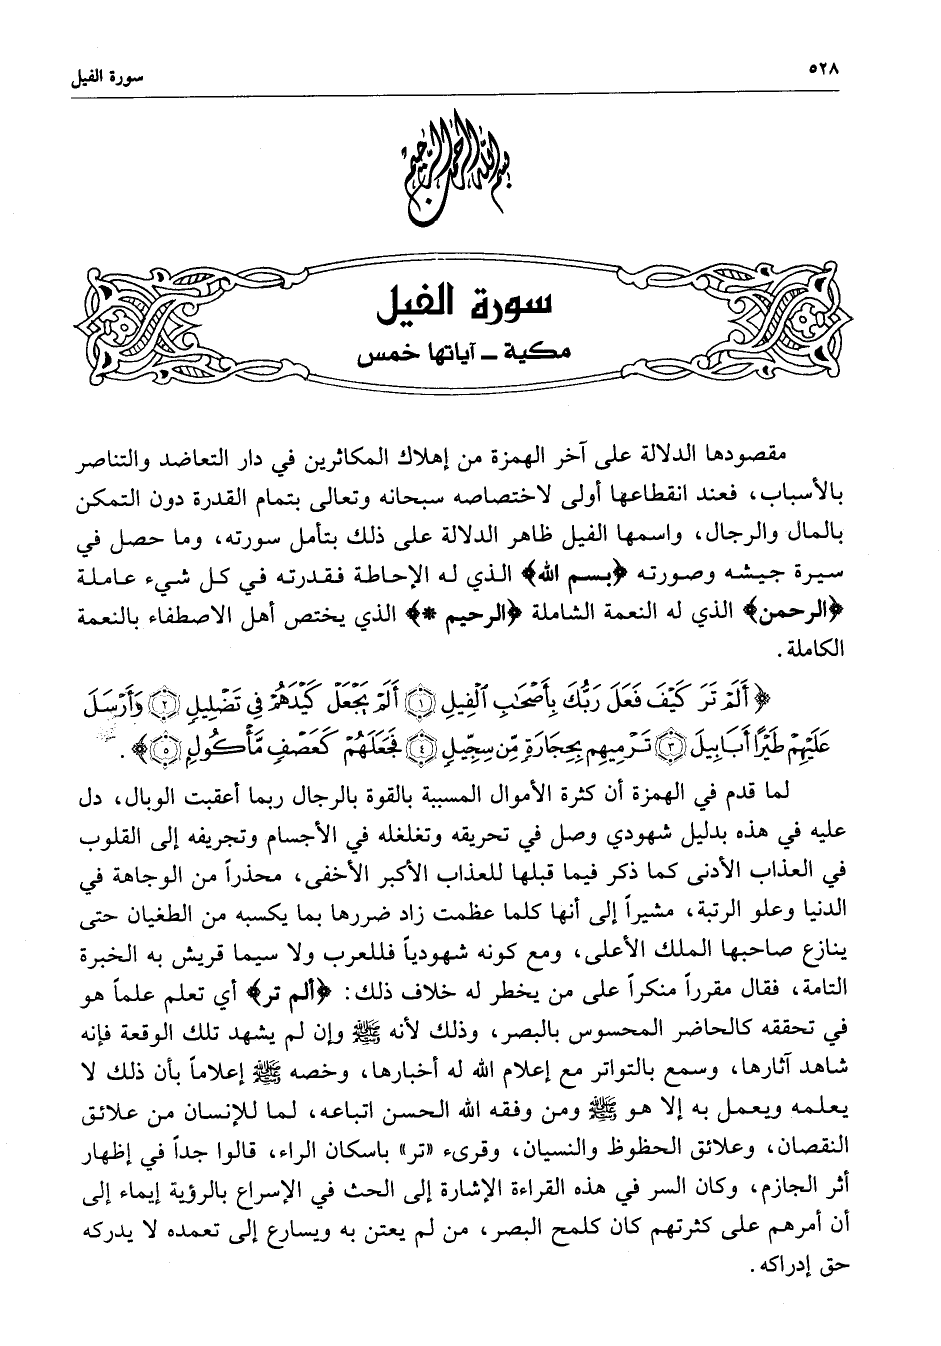 ٥٢٨
سورة الفيل
بسم الله الرحمن الرحيم
سورة الفيل
مكية ـ آياتها خمس
مقصودها الدلالة على آخر الهمزة من إهلاك المكاثرين في دار التعاضد والتناصر
بالأسباب، فعند انقطاعها أولى لاختصاصه سبحانه وتعالى بتمام القدرة دون التمكن
بالمال والرجال، واسمها الفيل ظاهر الدلالة على ذلك بتأمل سورته، وما حصل في
سيرة جيشه وصورته ﴿بسم الله﴾ الذي له الإحاطة فقدرته في كل شيء عاملة
﴿الرحمن﴾ الذي له النعمة الشاملة ﴿الرحيم *﴾ الذي يختص أهل الاصطفاء بالنعمة
الكاملة.
﴿أَلَمْ تَرَ كَيْفَ فَعَلَ رَبُّكَ بِأَصْحَٰبِ ٱلْفِيلِ ١ أَلَمْ يَجْعَلْ كَيْدَهُمْ فِى تَضْلِيلٍ ٢ وَأَرْسَلَ
عَلَيْهِمْ طَيْرًا أَبَابِيلَ ٣ تَرْمِيهِم بِحِجَارَةٍ مِّن سِجِّيلٍ ٤ فَجَعَلَهُمْ كَعَصْفٍ مَّأْكُولٍ ٥﴾.
لما قدم في الهمزة أن كثرة الأموال المسببة بالقوة بالرجال ربما أعقبت الوبال، دل
عليه في هذه بدليل شهودي وصل في تحريقه وتغلغله في الأجسام وتجريفه إلى القلوب
في العذاب الأدنى كما ذكر فيما قبلها للعذاب الأكبر الأخفى، محذراً من الوجاهة في
الدنيا وعلو الرتبة، مشيراً إلى أنها كلما عظمت زاد ضررها بما يكسبه من الطغيان حتى
ينازع صاحبها الملك الأعلى، ومع كونه شهودياً فللعرب ولا سيما قريش به الخبرة
التامة، فقال مقرراً منكراً على من يخطر له خلاف ذلك: ﴿ألم تر﴾ أي تعلم علماً هو
في تحققه كالحاضر المحسوس بالبصر، وذلك لأنه ﷺ وإن لم يشهد تلك الوقعة فإنه
شاهد آثارها، وسمع بالتواتر مع إعلام الله له أخبارها، وخصه ﷺ إعلاماً بأن ذلك لا
يعلمه ويعمل به إلا هو ﷺ ومن وفقه الله الحسن اتباعه، لما للإنسان من علائق
النقصان، وعلائق الحظوظ والنسيان، وقرىء «تر» باسكان الراء، قالوا جداً في إظهار
أثر الجازم، وكان السر في هذه القراءة الإشارة إلى الحث في الإسراع بالرؤية إيماء إلى
أن أمرهم على كثرتهم كان كلمح البصر، من لم يعتن به ويسارع إلى تعمده لا يدركه
حق إدراكه.